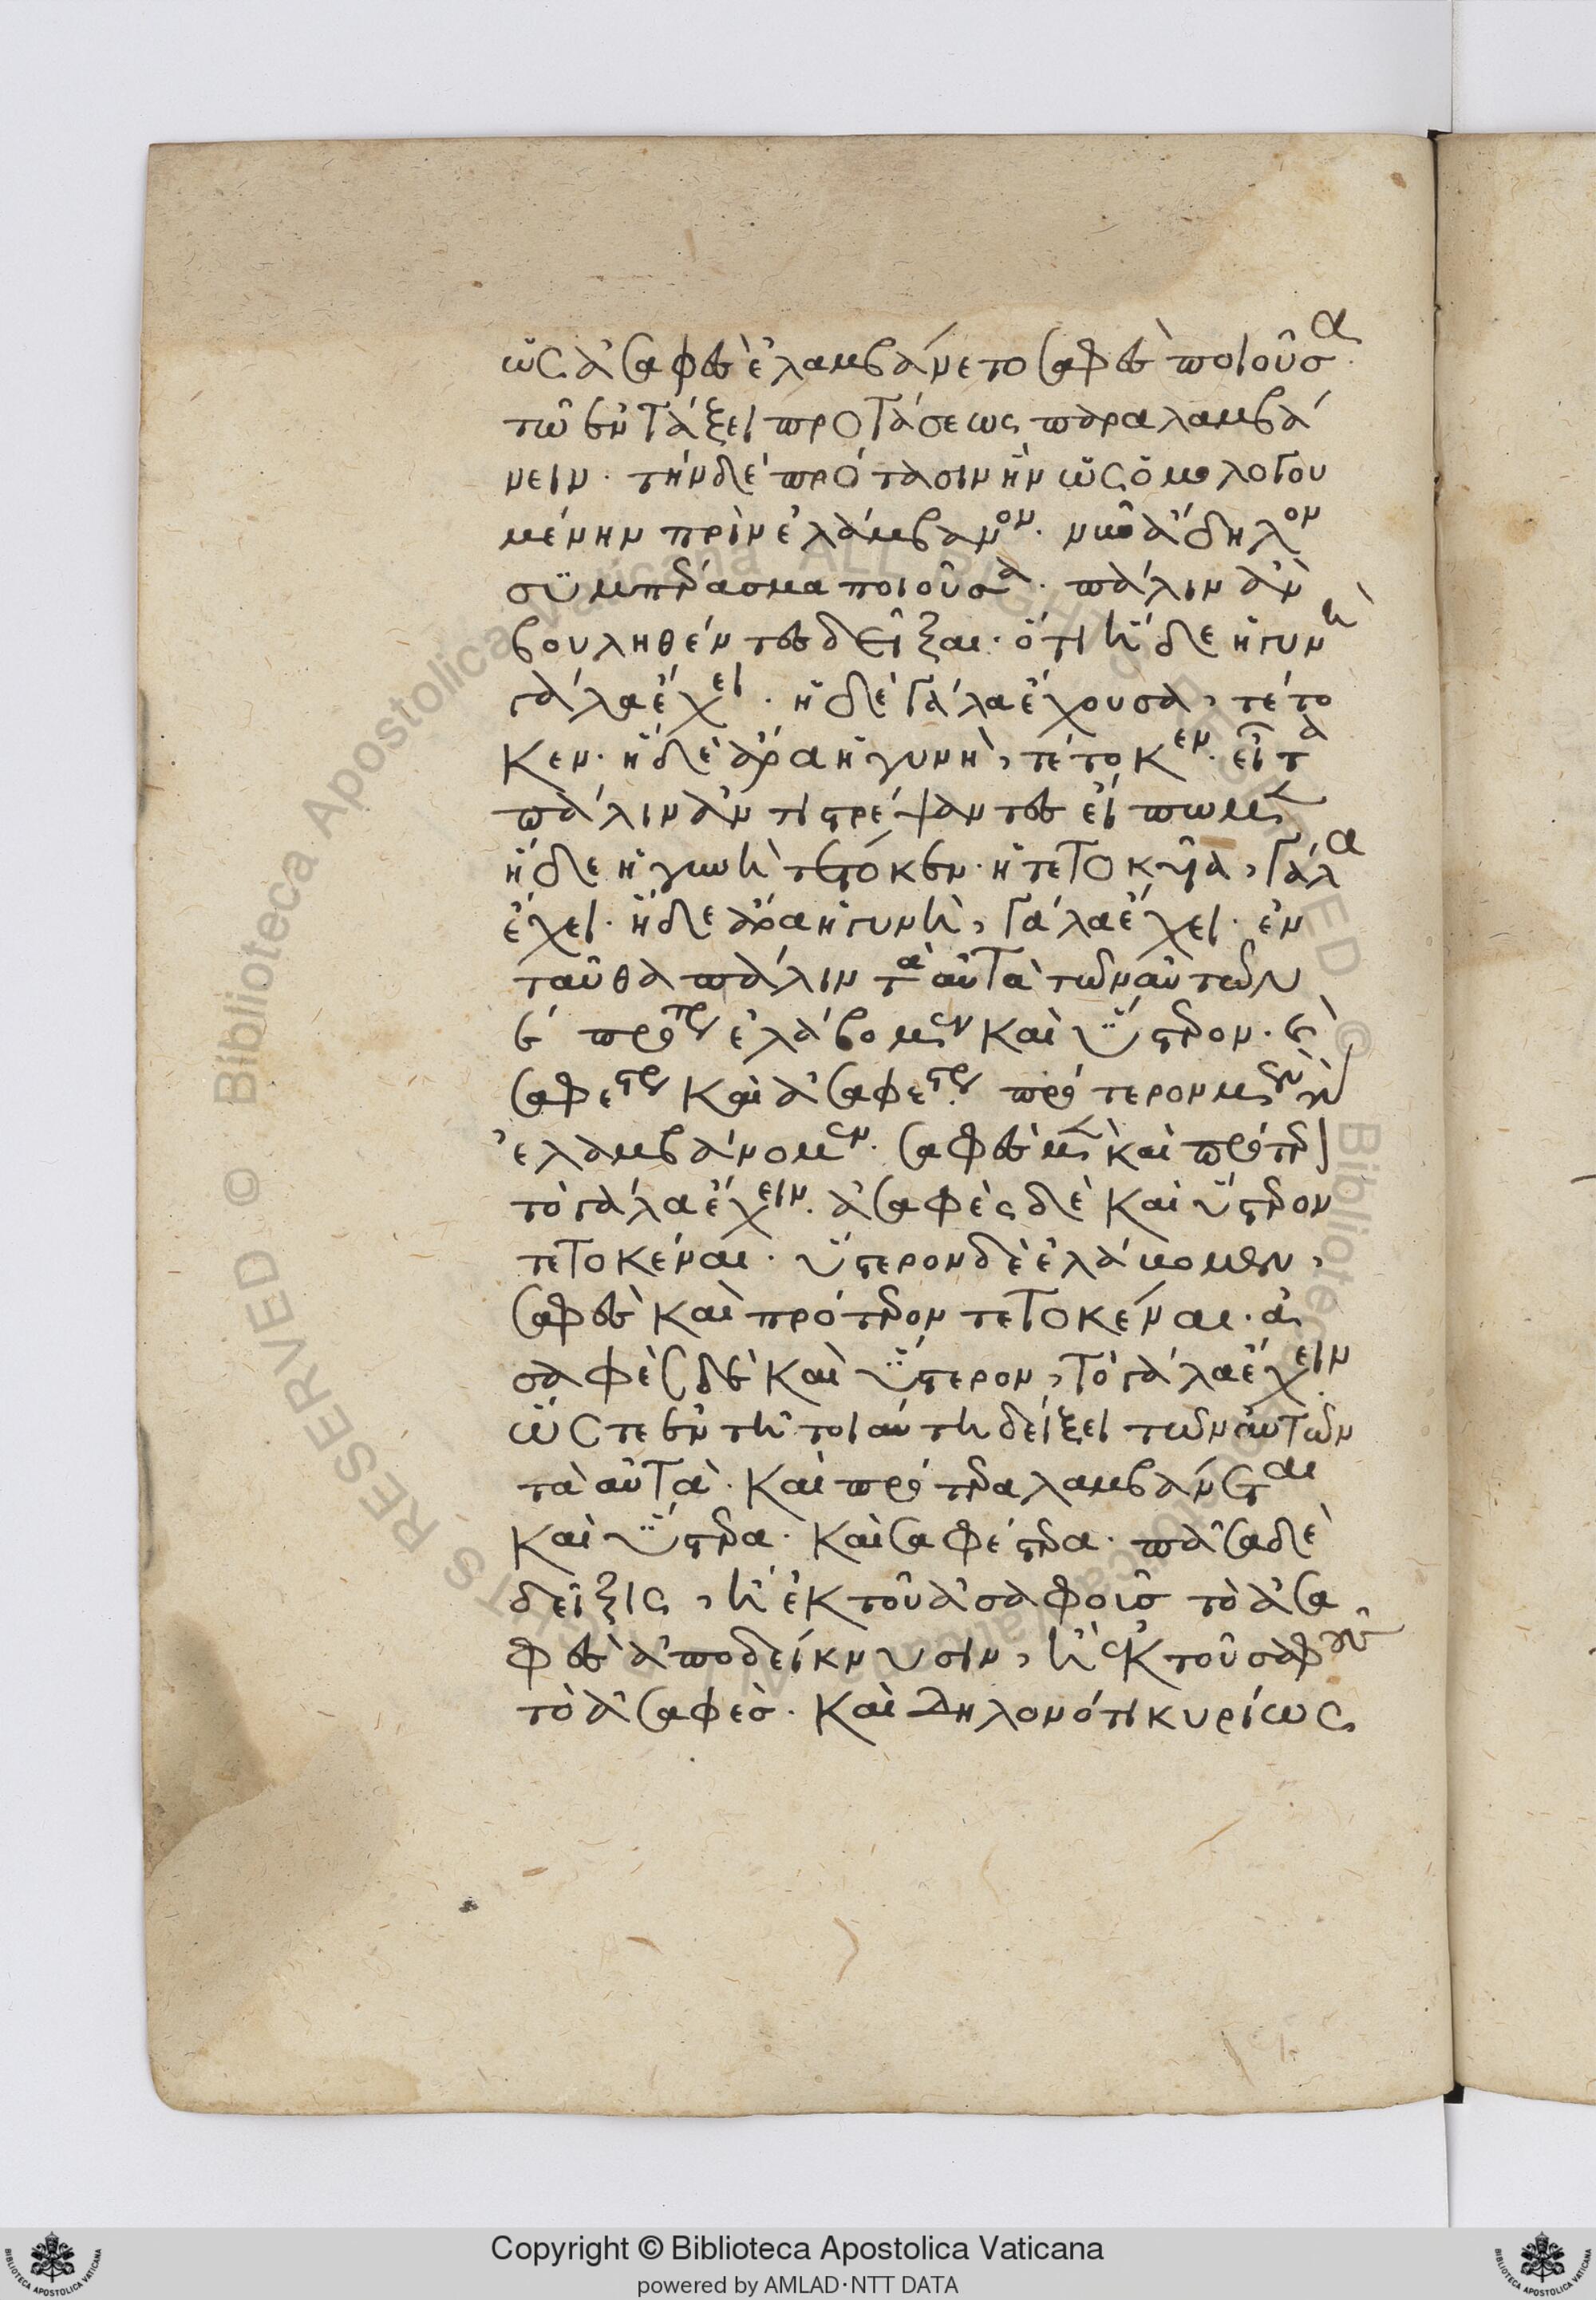 ὡς ἀσαφὲς ἐλαμβάνετο σαφὲς ποιοῦσα
τῶ ἐν τάξει προτάσεως παραλαμβά
νειν· τὴν δὲ πρότασιν ἣν ὡς ὁμολογου
μένην πρὶν ἐλάμβανον· νῦν ἄδηλον
συμπέρασμα ποιοῦσα· πάλιν ἀν
βουληθέντες δεῖξαι· ὅτι ἥδε ἡ γυνὴ
γάλα ἔχει· ἡ δὲ γάλα ἔχουσα, τέτο
κεν· ἥδε ἄρα ἡ γυνὴ, τέτοκεν· εἶτα
πάλιν ἀντιστρέψαντες εἴπωμεν
ἥδε ἡ γυνὴ τέτοκεν· ἡ τετοκυῖα, γάλα
ἔχει· ἥδε ἄρα ἡ γυνὴ, γάλα ἔχει· ἐν
ταῦθα πάλιν τὰ αὐτὰ τῶν αὐτῶν
ἐ πρότερον ἐλάβομεν καὶ ὕστερον· ἐ
σαφέστερον καὶ ἀσαφέστερον· πρότερον μὲν γὰρ
ἐλαμβάνομεν· σαφὲς μὲν καὶ πρότερον
τὸ γάλα ἔχειν· ἀσαφὲς δὲ καὶ ὕστερον
τετοκέναι· ὕστερον δὲ ἐλάβομεν,
σαφὲς καὶ πρότερον τετοκέναι· ἀ
σαφὲς δὲ καὶ ὕστερον, τὸ γάλα ἔχειν
ὥστε ἐν τῆ τοιαύτη δείξει τῶν αὐτῶν
τὰ αὐτὰ· καὶ πρότερα λαμβάνεται
καὶ ὕστερα· καὶ σαφέστερα· πᾶσα δὲ
δεῖξις, ἢ ἐκ τοῦ ἀσαφοῦς τὸ ἀσα
φὲς ἀποδείκνυσιν, ἢ ἐκ τοῦ σαφοῦς
τὸ ἀσαφὲς· καὶ δηλονότι κυρίως
Copyright © Biblioteca Apostolica Vaticana
powered by AMLAD·NTT DATA